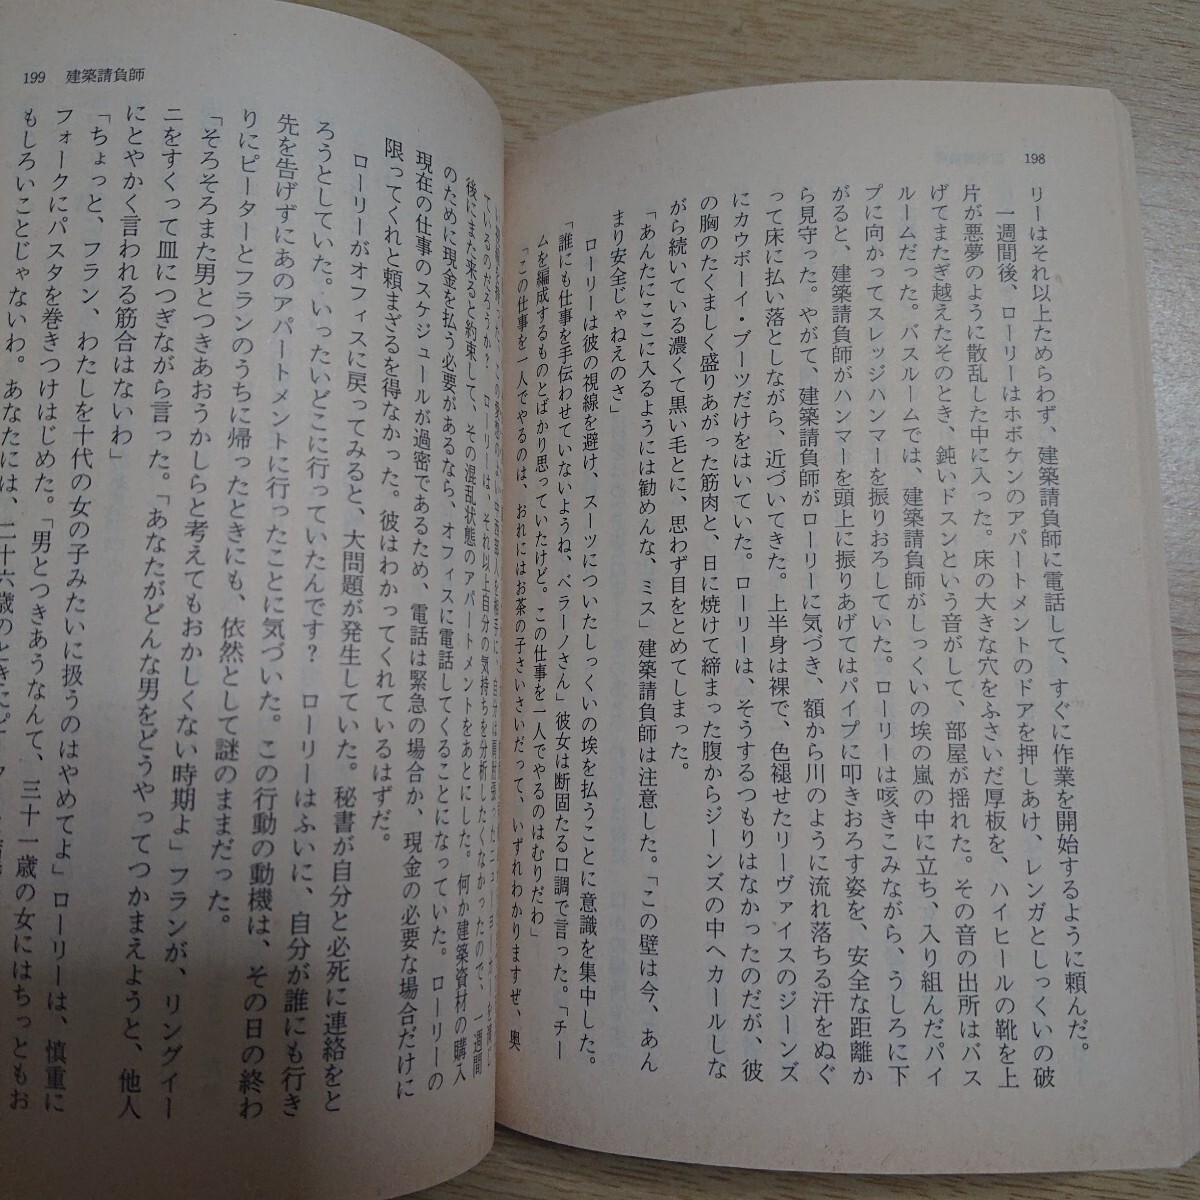 198
リーはそれ以上ためらわず、建築請負師に電話して、すぐに作業を開始するように頼んだ。
一週間後、ローリーはホボケンのアパートメントのドアを押しあけ、レンガとしっくいの破
片が悪夢のように散乱した中に入った。床の大きな穴をふさいだ厚板を、ハイヒールの靴を上
げてまたぎ越えたそのとき、鈍いドスンという音がして、部屋が揺れた。その音の出所はバス
ルームだった。バスルームでは、建築請負師がしっくいの埃の嵐の中に立ち、入り組んだパイ
プに向かってスレッジハンマーを振りおろしていた。ローリーは咳きこみながら、うしろに下
がると、建築請負師がハンマーを頭上に振りあげてはパイプに叩きおろす姿を、安全な距離か
ら見守った。やがて、建築請負師がローリーに気づき、額から川のように流れ落ちる汗をぬぐ
って床に払い落としながら、近づいてきた。上半身は裸で、色褪せたリーヴァイスのジーンズ
にカウボーイ・ブーツだけをはいていた。ローリーは、そうするつもりはなかったのだが、彼
の胸のたくましく盛りあがった筋肉と、日に焼けて締まった腹からジーンズの中へカールしな
がら続いている濃くて黒い毛とに、思わず目をとめてしまった。
「あんたにここに入るようには勧めんな、ミス」建築請負師は注意した。「この壁は今、あん
まり安全じゃねえのさ」
ローリーは彼の視線を避け、スーツについたしっくいの埃を払うことに意識を集中した。
「誰にも仕事を手伝わせていないようね、ベラーノさん」彼女は断固たる口調で言った。「チー
ムを編成するものとばかり思っていたけど。この仕事を一人でやるのはむりだわ」
「この仕事を一人でやるのは、おれにはお茶の子さいさいだって、いずれわかりますぜ、奥
199 建築請負師
ているのだろうか? ローリーは、それ以上自分の気持ちを分析したくなかったので、一週間
後にまた来ると約束して、その混乱状態のアパートメントをあとにした。何か建築資材の購入
のために現金を払う必要があるなら、オフィスに電話してくることになっていた。ローリーの
現在の仕事のスケジュールが過密であるため、電話は緊急の場合か、現金の必要な場合だけに
限ってくれと頼まざるを得なかった。彼はわかってくれているはずだ。
ローリーがオフィスに戻ってみると、大問題が発生していた。秘書が自分と必死に連絡をと
ろうとしていた。いったいどこに行っていたんです? ローリーはふいに、自分が誰にも行き
先を告げずにあのアパートメントに行ったことに気づいた。この行動の動機は、その日の終わ
りにピーターとフランのうちに帰ったときにも、依然として謎のままだった。
「そろそろまた男とつきあおうかしらと考えてもおかしくない時期よ」フランが、リングイー
ニをすくって皿につぎながら言った。「あなたがどんな男をどうやってつかまえようと、他人
にとやかく言われる筋合はないわ」
「ちょっと、フラン、わたしを十代の女の子みたいに扱うのはやめてよ」ローリーは、慎重に
フォークにパスタを巻きつけはじめた。「男とつきあうなんて、三十一歳の女にはちっともお
もしろいことじゃないわ。あなたには、二十六歳のときに